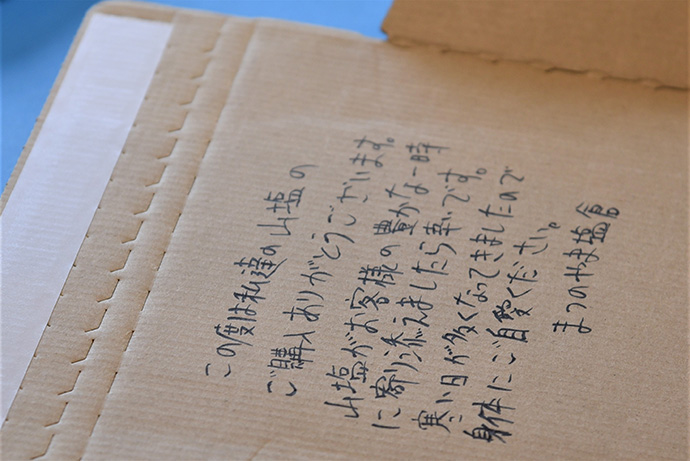 この度は私達の山塩の
ご購入ありがとうございます。
山塩がお客様の豊かな一時
に寄り添えましたら幸いです。
寒い日が多くなってきましたので
身体にご自愛ください。
まつのやま塩倉